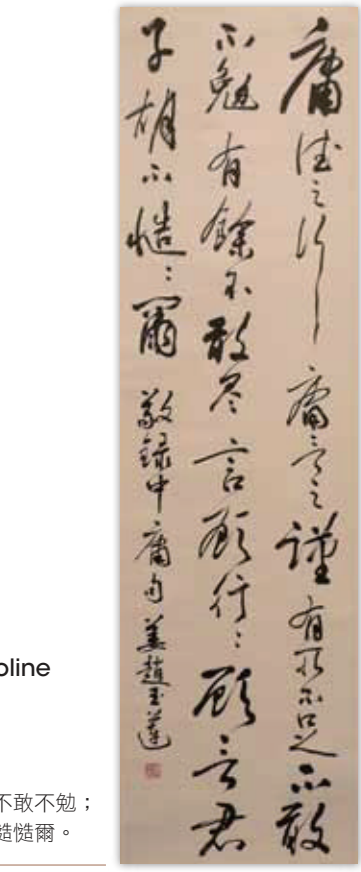 庸德之行庸言之謹有所不足不敢
不勉有餘不敢尽言顧行：顧言君
子胡不慥：爾 敬録中庸句 姜趙玉蓮
oline
不敢不勉；
慥慥爾。